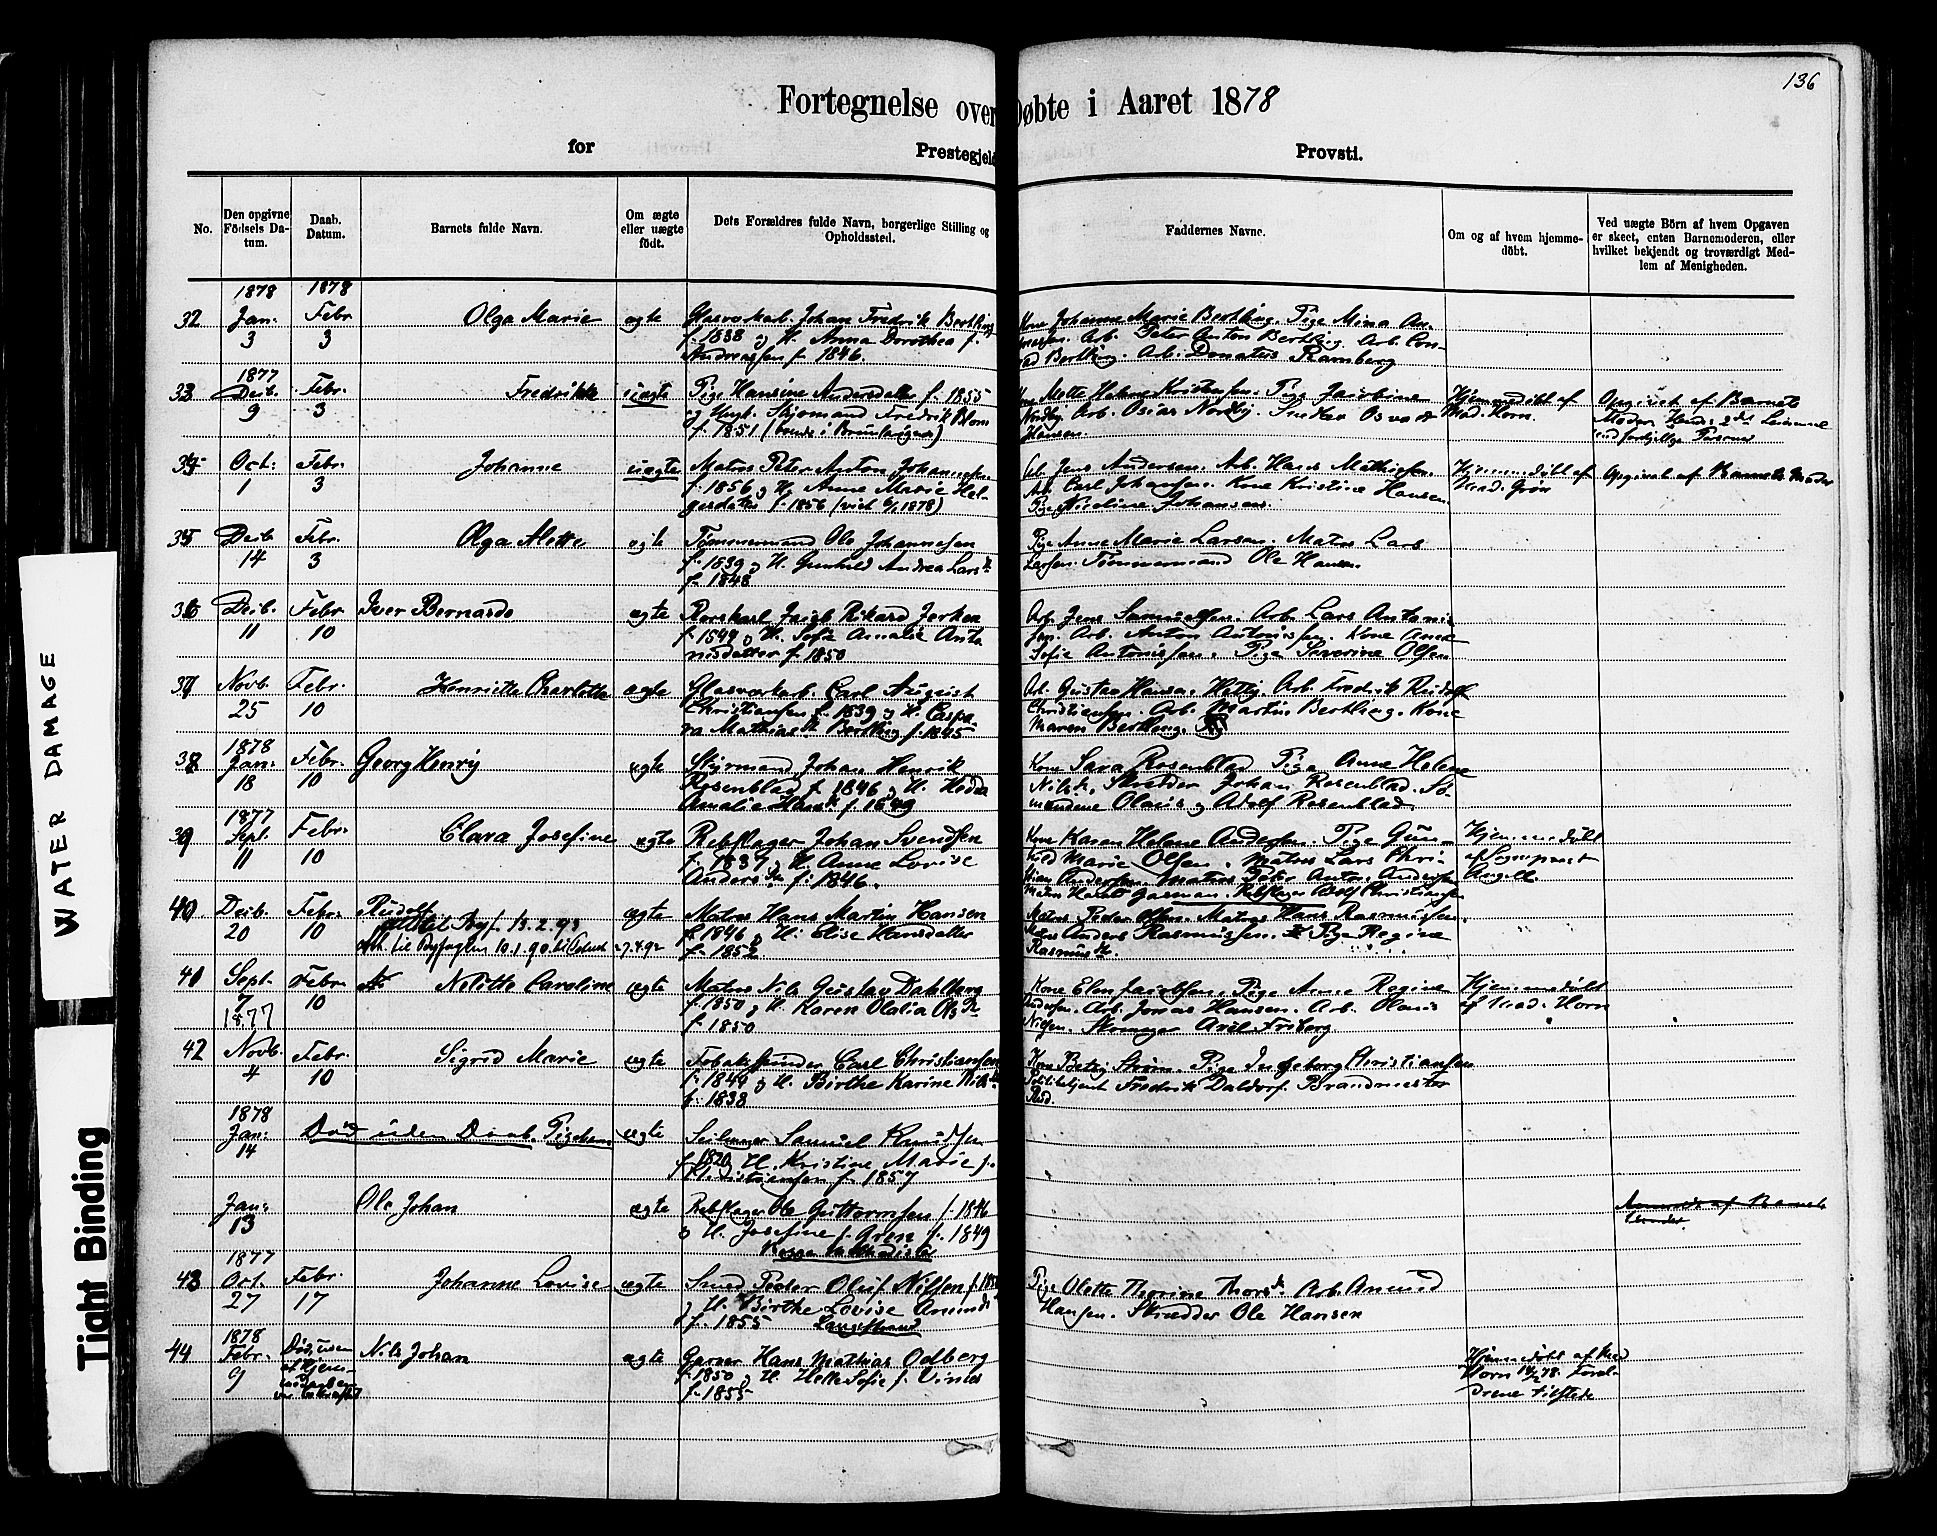 136
Fortegnelse over Døbte i Aaret 1878
for Prestegjeld Provsti.
No.
Den opgivne Födsels Datum.
Daab. Datum.
Barnets fulde Navn.
Om ægte eller uægte födt.
Dets Forældres fulde Navn, borgerlige Stilling og Opholdssted.
Faddernes Navne.
Om og af hvem hjemmedöbt.
Ved uægte Börn af hvem Opgaven er skeet, enten Barnemoderen, eller hvilket bekjendt og troværdigt Medlem af Menigheden.
1878 1878
32 Jan. 3 Febr 3 Olga Marie ægte
Glasværkarb. Johan Fredrik Bertling
f. 1838 og H. Anna Dorothea f.
Andreassen f. 1846.
Kone Johanne Marie Bertling. Pige Mina An-
Arb. Peter Anton Bertling. Arb. Con-
rad Bertling. Arb. Donatus Ramberg
1877
33 Decb. 9 Febr. 3 Fredrikke uægte
Pige Hansine Andersdatter f. 1855
og Ungk. Styrmand Fredrik Blom
f. 1851
Mette Helene Kristensen. Pige Jacobine
Nordby Arb. Oscar Nordby. Snedker Osvald
Hansen.
Hjemmedöbt af
Mad. Horn.
Opgivet af Barnets
Moder Hendes 2det Leiermaal
med forskjellige Personer
34 Oct. 1 Febr. 3 Johanne uægte
Matros Peter Anton Johannesen
f. 1856 og H. Anne Marie Hel-
gesdatter f. 1856
Arb. Jens Andersen. Arb. Hans Mathisen.
Arb. Carl Johansen. Kone Kristine Hansen.
Pige Nicoline Johansen.
Hjemmedöbt af
Mad. Grön
Opgivet af Barnets Moder
35 Decb 14 Febr. 3 Olga Alette ægte
Tømmermand Ole Johannesen
f. 1839 og H. Gunhild Andrea Larsd.
f. 1848
Pige Anne Marie Larsen. Matros Lars
Larsen. Tømmermand Ole Hansen.
36 Decb. 11 Febr 10 Iver Bernardo ægte
f. 1849 og H. Sofie Amalie Anto-
nisdatter f. 1850
Arb. Jens Samuelsen. Arb. Lars Antoni-
sen. Arb. Anton Antonissen. Kone Anne
Sofie Antonissen. Pige Severine Olsen
37 Novb. 25 Febr. 10 Henriette Charlotte ægte
Glasværkarb. Carl August
Christiansen f. 1839 og H. Caspa-
ra Mathiasd. Bertling f. 1845
Arb. Gustav Hansen. Arb. Fredrik Rudolf
Christiansen. Arb. Martin Bertling. Kone
Maren Bertling.
1878
38 Jan. 18 Febr. 10 Georg Henry ægte
Styrmand Johan Henrik
Rosenblad f. 1846 og H. Hedda
Amalie Hansd. f. 1849
Kone Sara Rosenblad Pige Anne Helene
Nilsd. Skredder Johan Rosenblad. Sö-
mændene Olaus og Adolf Rosenblad.
1877
39 Sept. 11 Febr. 10 Clara Josefine ægte
Rebslager Johan Svendsen
f. 1837 og H. Anne Lovise
Andersd. f. 1846.
Kone Karen Helene Andersen. Pige Gun-
hild Marie Olsen. Matros Lars Chri-
stian Andersen. Matros Peter Anton Andersen
Hjemmedöbt
af Sogneprest
Angell
40 Decb. 20 Febr. 10 Rudolf ægte
13.2.93
10.1.90. 27.4.92
Matros Hans Martin Hansen
f. 1846 og H. Elise Hansdatter
f. 1852
Matros Peder Olsen. Matros Hans Rasmussen.
Matros Anders Rasmussen. Pige Regine
Rasmusd.
41 Sept. 7 1877 Febr. 10 Nelitte Caroline ægte
Matros Nils Gustav Dahlberg
f. 1850 og H. Karen Olalia Olsd.
f. 1850
Kone Elen Jacobsen. Pige Anne Regine
Andersen. Arb. Jonas Hansen. Arb. Olaus
Nielsen. Skomager Axel Friberg
Hjemmedöbt
af Mad. Horn
42 Novb. 4 Febr. 10 Sigrid Marie ægte
Tobakspinder Carl Christiansen
f. 1844 og H. Birthe Karine Nilsd.
f. 1838
Kone Betzy Ström. Pige Ingeborg Christiansen
Politibetjent Fredrik Daldorf. Brandmester
1878
Jan. 14 Død uden Daab. Pigebarn ægte
Seilmager Samuel Knudsen
f. 1820 og H. Kristine Marie f.
Christiansen f. 1857
Jan. 13 Ole Johan ægte
Rebslager Ole Guttormsen f. 1846
og H. Josefine f. Gren f. 1849
1877
43 Oct. 27 Febr. 17 Johanne Lovise ægte
Smed Peder Oluf Nilssen f. 1852
og H. Birthe Lovise Amunds
f. 1855 Langestrand
Pige Olette Thorine Thorsd. Arb. Amund
Hansen. Skredder Ole Hansen
1878
44 Febr. 9 Død, uden
at Hjemme-
daaben
var bekræftet
Nils Johan ægte
Garver Hans Mathias Odberg
f. 1850 og H. Helle Sofie f. Vines
f. 1855
Hjemmedöbt af Mad
Horn 78. Foræl-
drene tilstede
WATER DAMAGE
Tight Binding